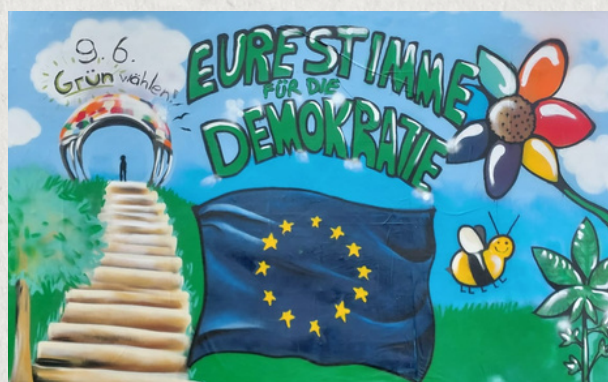 9.6.
Grün wählen!
EURE STIMME
FÜR DIE
DEMOKRATIE